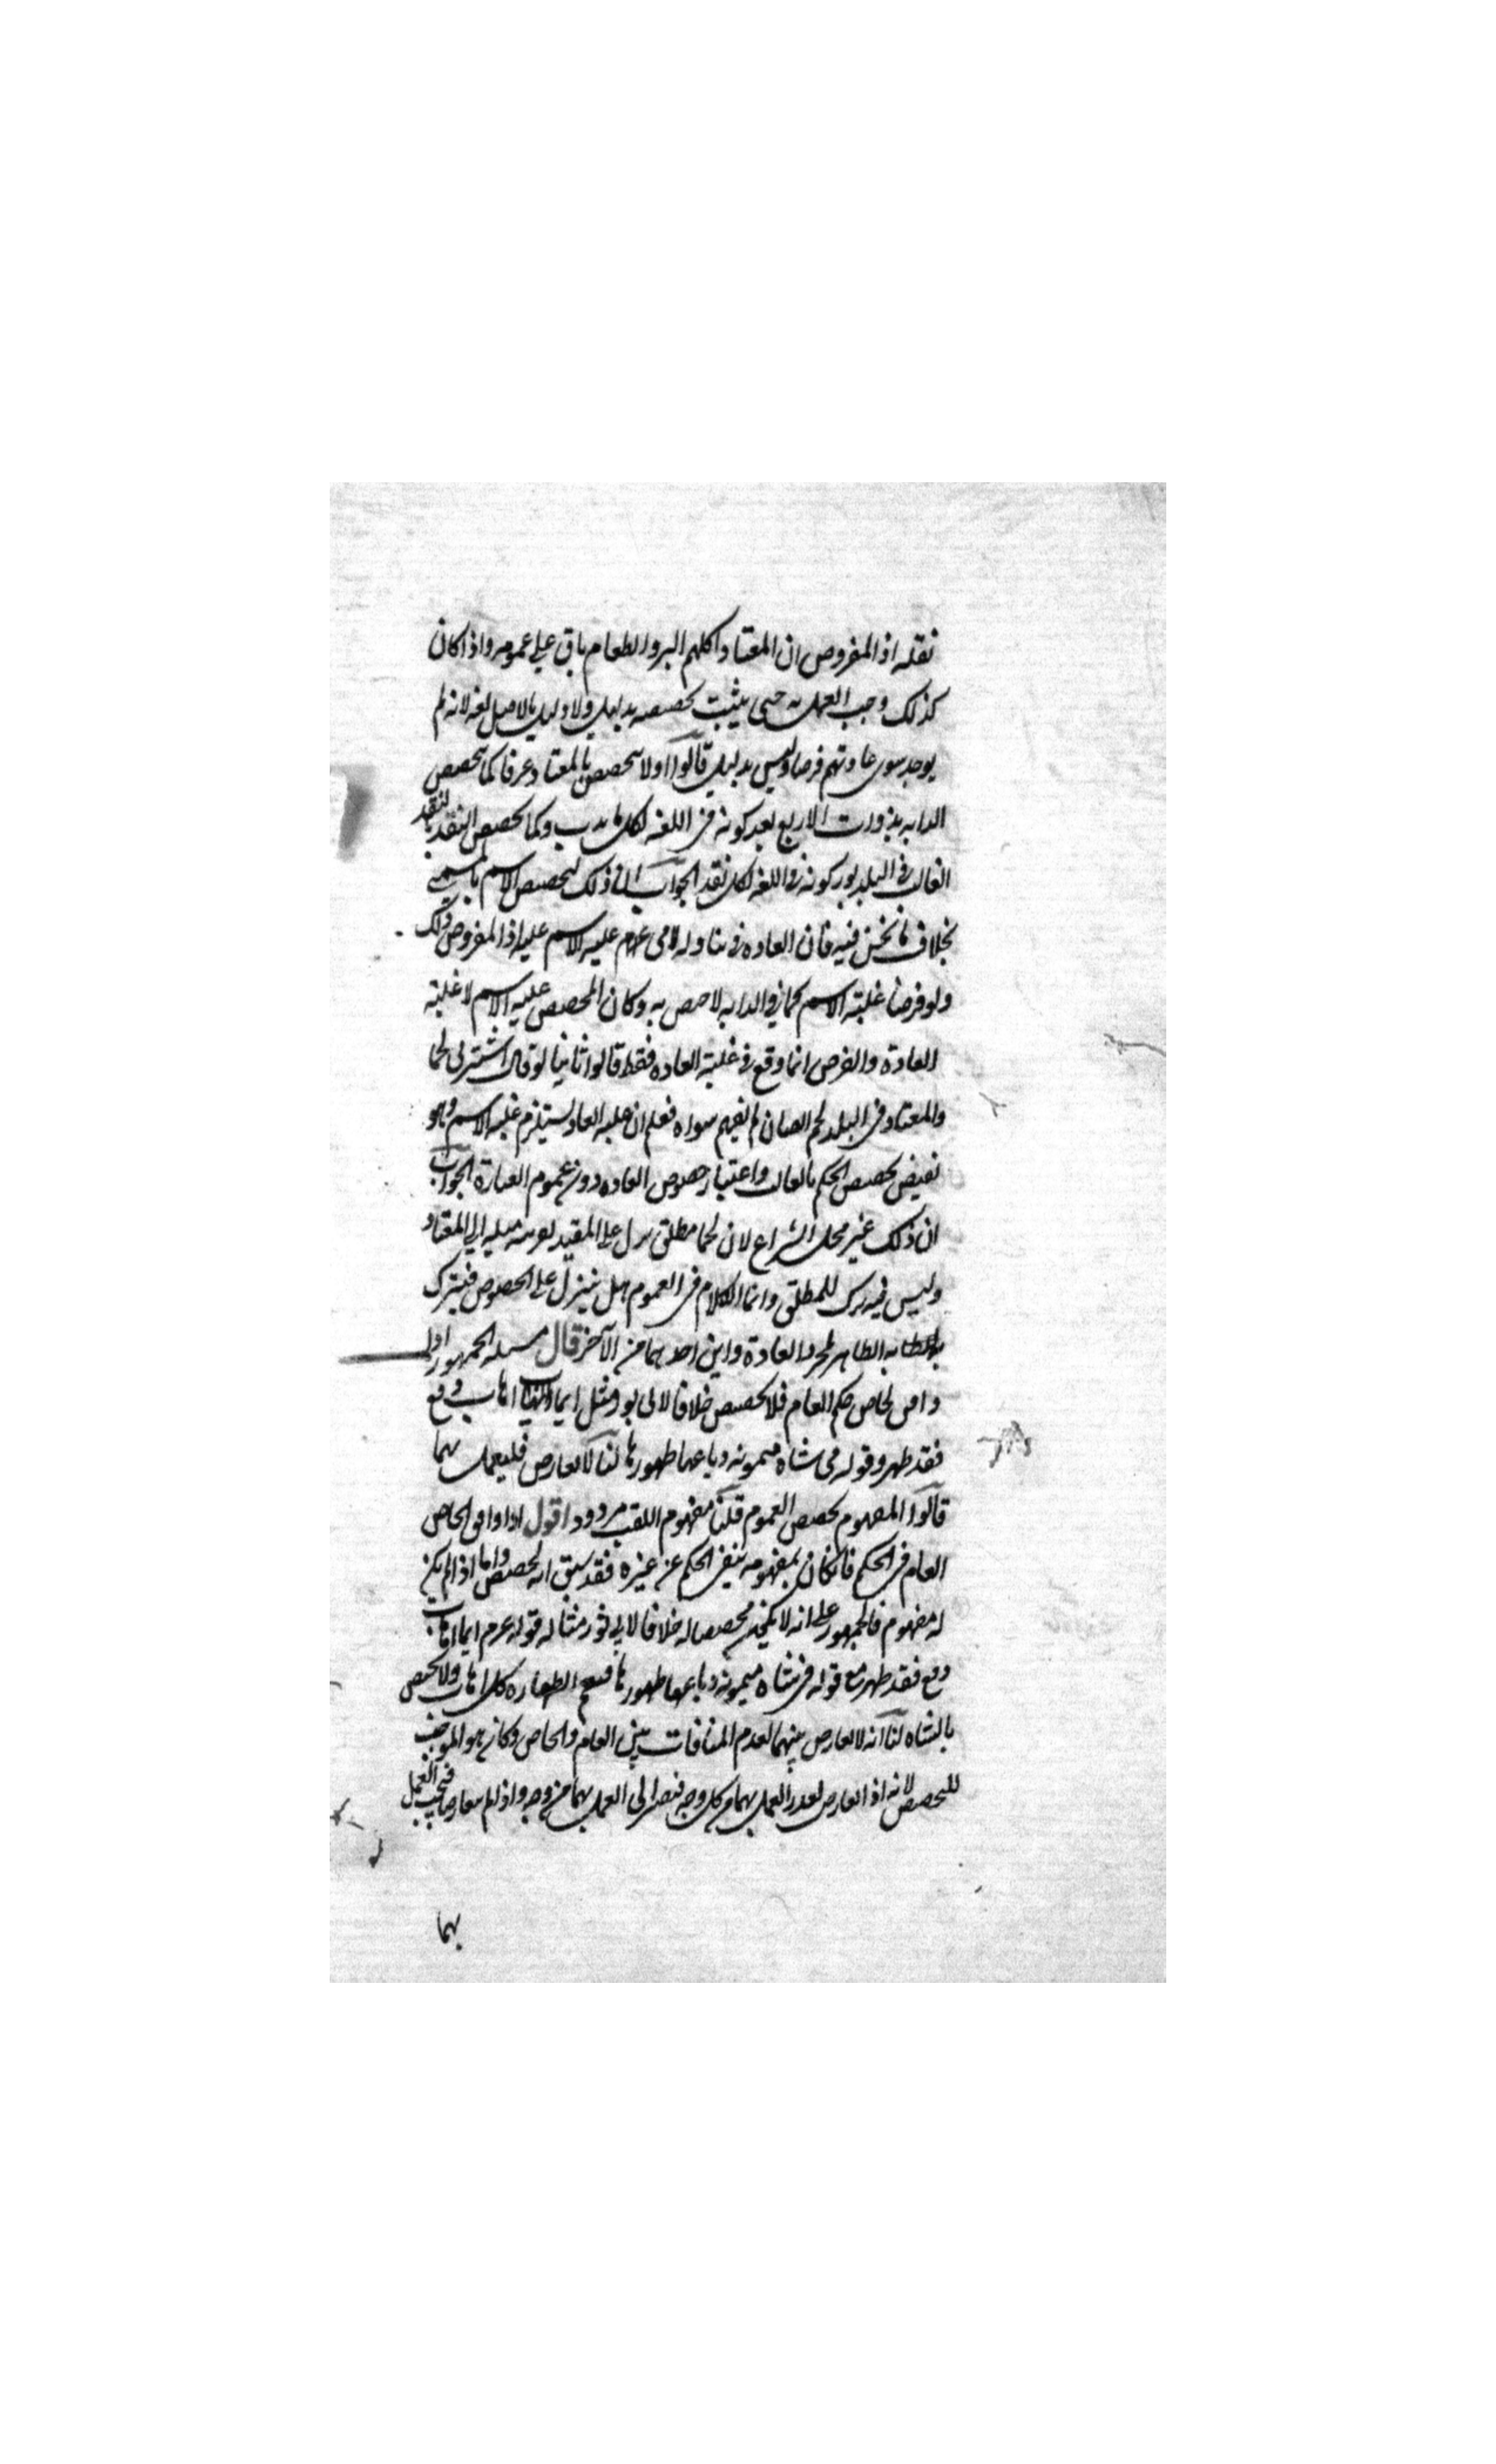 نقله اذ المفروض ان المعتاد اكلهم البر والطعام باق على عمومه واذا كان
كذلك وجب العمل به حتى يثبت تخصيصه بدليل ولا دليل بالاصل لغه لانه لم
يوجد سوى عادتهم فرضا وليس بدليل قالوا اولا تخصص بالمعتاد عرفا كما تخصص
الدابه بذوات الاربع بعد كونه فى اللغه لكل ما يدب وكما تخصص النقد بالنقد
الغالب فى البلد بعد كونه فى اللغه لكل نقد الجواب ان ذلك لتخصيص الاسم
بخلاف ما نحن فيه فان العاده فى تناوله لا فى عليه الاسم عليه اذ المفروض ذلك
ولو فرضنا غلبة الاسم كما فى الدابه لاختص به وكان المخصص غلبة الاسم لا غلبة
العادة والفرض انما وقع فى غلبة العاده فقط قالوا ثانيا لو قال اشتر لى لحما
والمعتاد فى البلد لحم الضان لم يفهم سواه فعلم ان غلبه العاده يستلزم غلبه الاسم وهو
تخصيص الحكم بالغالب واعتبار خصوص العاده دون عموم العبارة الجواب
ان ذلك غير محل النزاع لان لحما مطلق نزل على المقيد لقرينه ميله الى المعتاد
وليس فيه ترك للمطلق وانما الكلام فى العموم هل ينزل على الخصوص فيترك
الظاهر لمجرد العادة واين احدهما من الآخر قال مسئله الجمهور اذا
وافق الخاص حكم العام فلا تخصيص خلافا لابى ثور مثل ايما اهاب دبغ
فقد طهر وقوله فى شاه ميمونه دباغها طهورها لنا لا تعارض فليعمل بهما
قالوا المفهوم يخصص العموم قلنا مفهوم اللقب مردود اقول اذا وافق الخاص
العام فى الحكم فان كان بمفهومه ينفى الحكم عن غيره فقد سبق انه تخصيص واما اذا لم يكن
له مفهوم فالجمهور على انه لا يكون مخصصا له خلافا لابى ثور مثاله قوله عم ايما اهاب
دبغ فقد طهر مع قوله فى شاه ميمونه دباغها طهورها فتعم الطهاره كل اهاب ولا تختص
بالشاه لنا انه لا تعارض بينهما لعدم المنافات بين العام والخاص وكان هو الموجب
للتخصيص لانه اذا تعارض تعذر العمل بهما من كل وجه فنصير الى العمل بهما من وجه واذا لم يتعارضا فيجب العمل
بهما